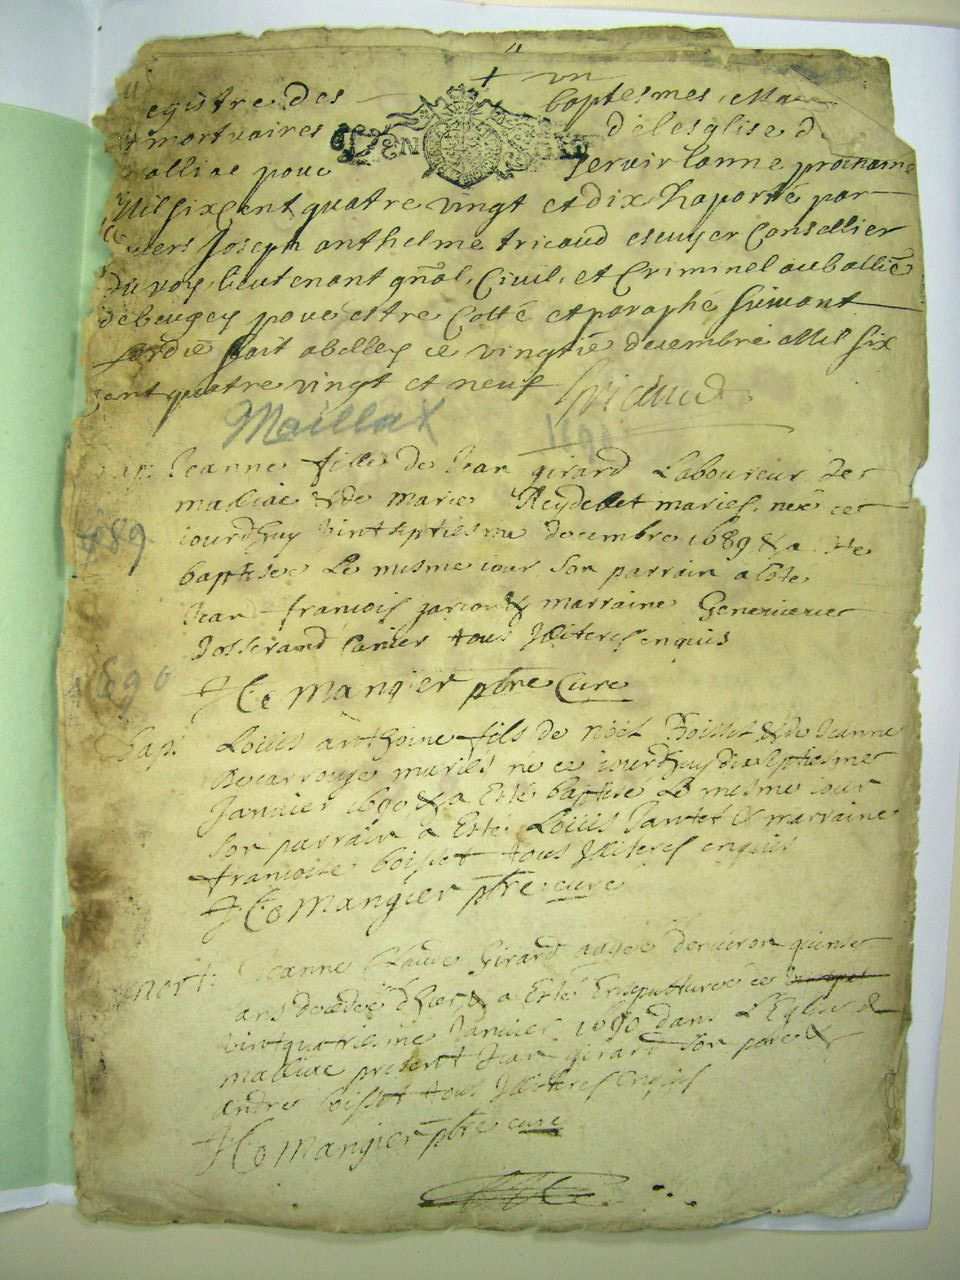 un
egistre des baptesmes, Ma
& mortuaires de lesglise d
alliac pour servir lanne prochaine
Mil six cent quatre vingt et dix Raporté par
Joseph anthelme tricaud escuyer Consellier
du roy, lieutenant gñal, Civil, et Criminel au balliē
de beugey pour estre Cotté et paraphé suivant
lordrē fait a belley ce vingtiē decembre Mil six
cent quatre vingt et neuf Tricaud
Maillat 1690
bap: Jeanne fille de Jean girard Laboureur de
malliac & de marie Reydelet mariés, neé ce
iourdhuy vint septiesme decembre 1689 & a ete
1689
baptisee Le mesme iour son parrain a esté
Jean francois & marraine Genevieve
Josserand tous Illiterés enquis
1690
Mangier pbre Cure
bap: Louis anthoine fils de noël Boisset & de Jeanne
Decarrouge mariés né ce iourdhuy dixseptiesme
Janvier 1690 & a Esté baptisé Le mesme iour
Son parrain a Esté Louis & marraine
francoise boisset tous Illiterés enquis
Mangier pbre cure
mort: Jeanne Claude Girard aagée denviron quinze
ans decedeé dhier & a Esté Ensepulturée ce
vintquatriesme Janvier 1690 dans L'Eglise de
malliac present Jean girard son pere &
andre boisset tous Illiterés enquis
Mangier pbre cure